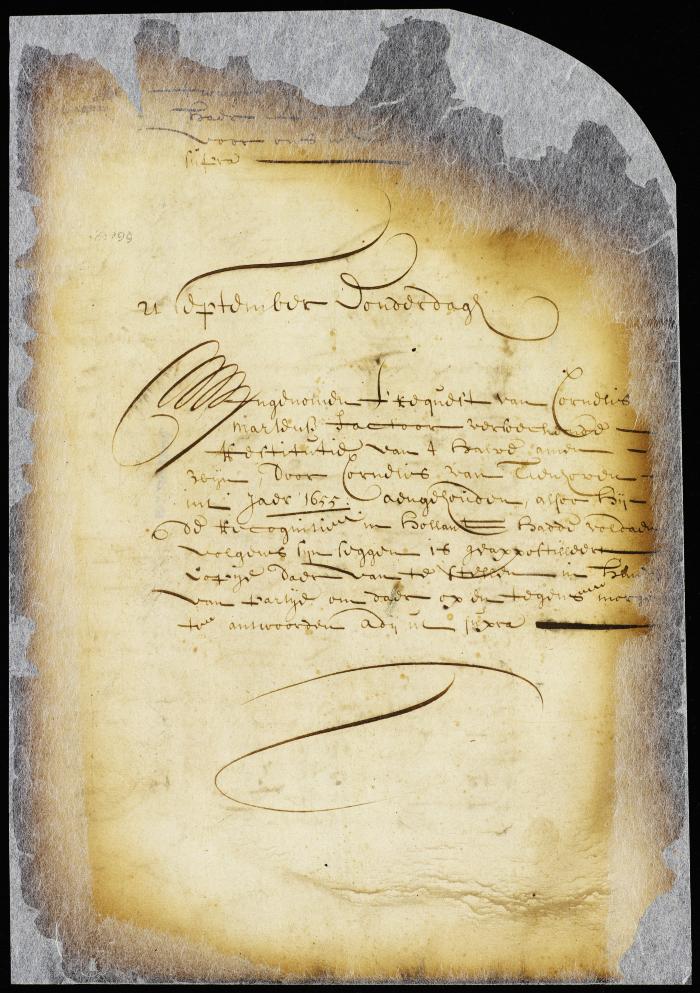 voor
supra
September Donderdag
Ingenomen 't request van Cornelis
Martensz Factoor versoeckende
restitutie van 4 halve amen
wijn, door Cornelis van Tienhoven
int Jaer 1655 aengehouden, alsoo hij
de Recognitie in Hollant hadde voldaen
volgens sijn seggen is geappostilleert
copije daer van te stellen in handen
van Partije om daer op en tegens
te antwoorden Adij ut supra